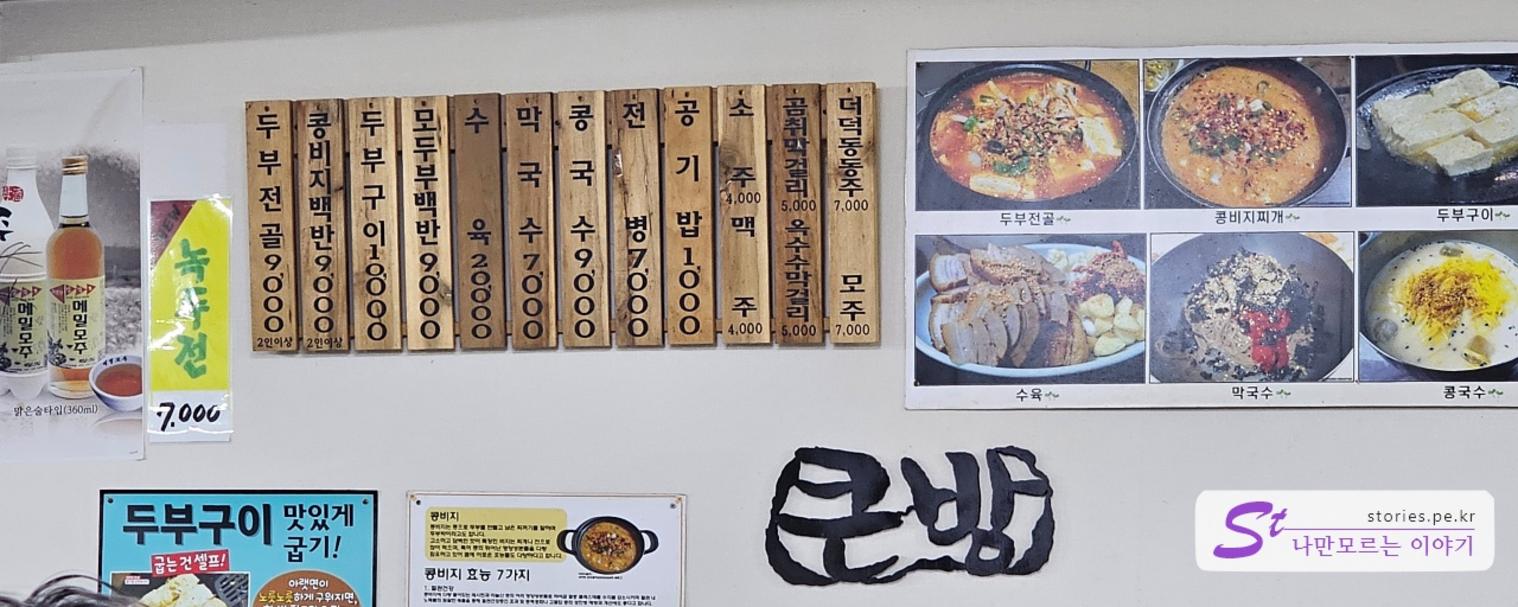 메밀모주
메밀모주
맑은술타입(360ml)
NEW
녹두전
7.000
두부전골 9,000
2인이상
콩비지백반 9,000
2인이상
두부구이 10,000
모두부백반 9,000
수육 20,000
막국수 7,000
콩국수 9,000
전병 7,000
공기밥 1,000
소주
4,000
맥주
4,000
곰취막걸리
5,000
옥수수막걸리
5,000
더덕동동주
7,000
모주
7,000
두부전골
콩비지찌개
두부구이
수육
막국수
콩국수
큰방
두부구이 맛있게
굽기!
굽는건 셀프!
아랫면이
노릇노릇하게 구워지면,
콩비지
콩비지 효능 7가지
St
stories.pe.kr
나만모르는 이야기